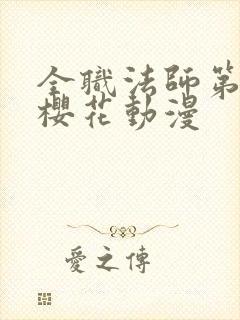 全職法師第
櫻花動漫
愛之傳